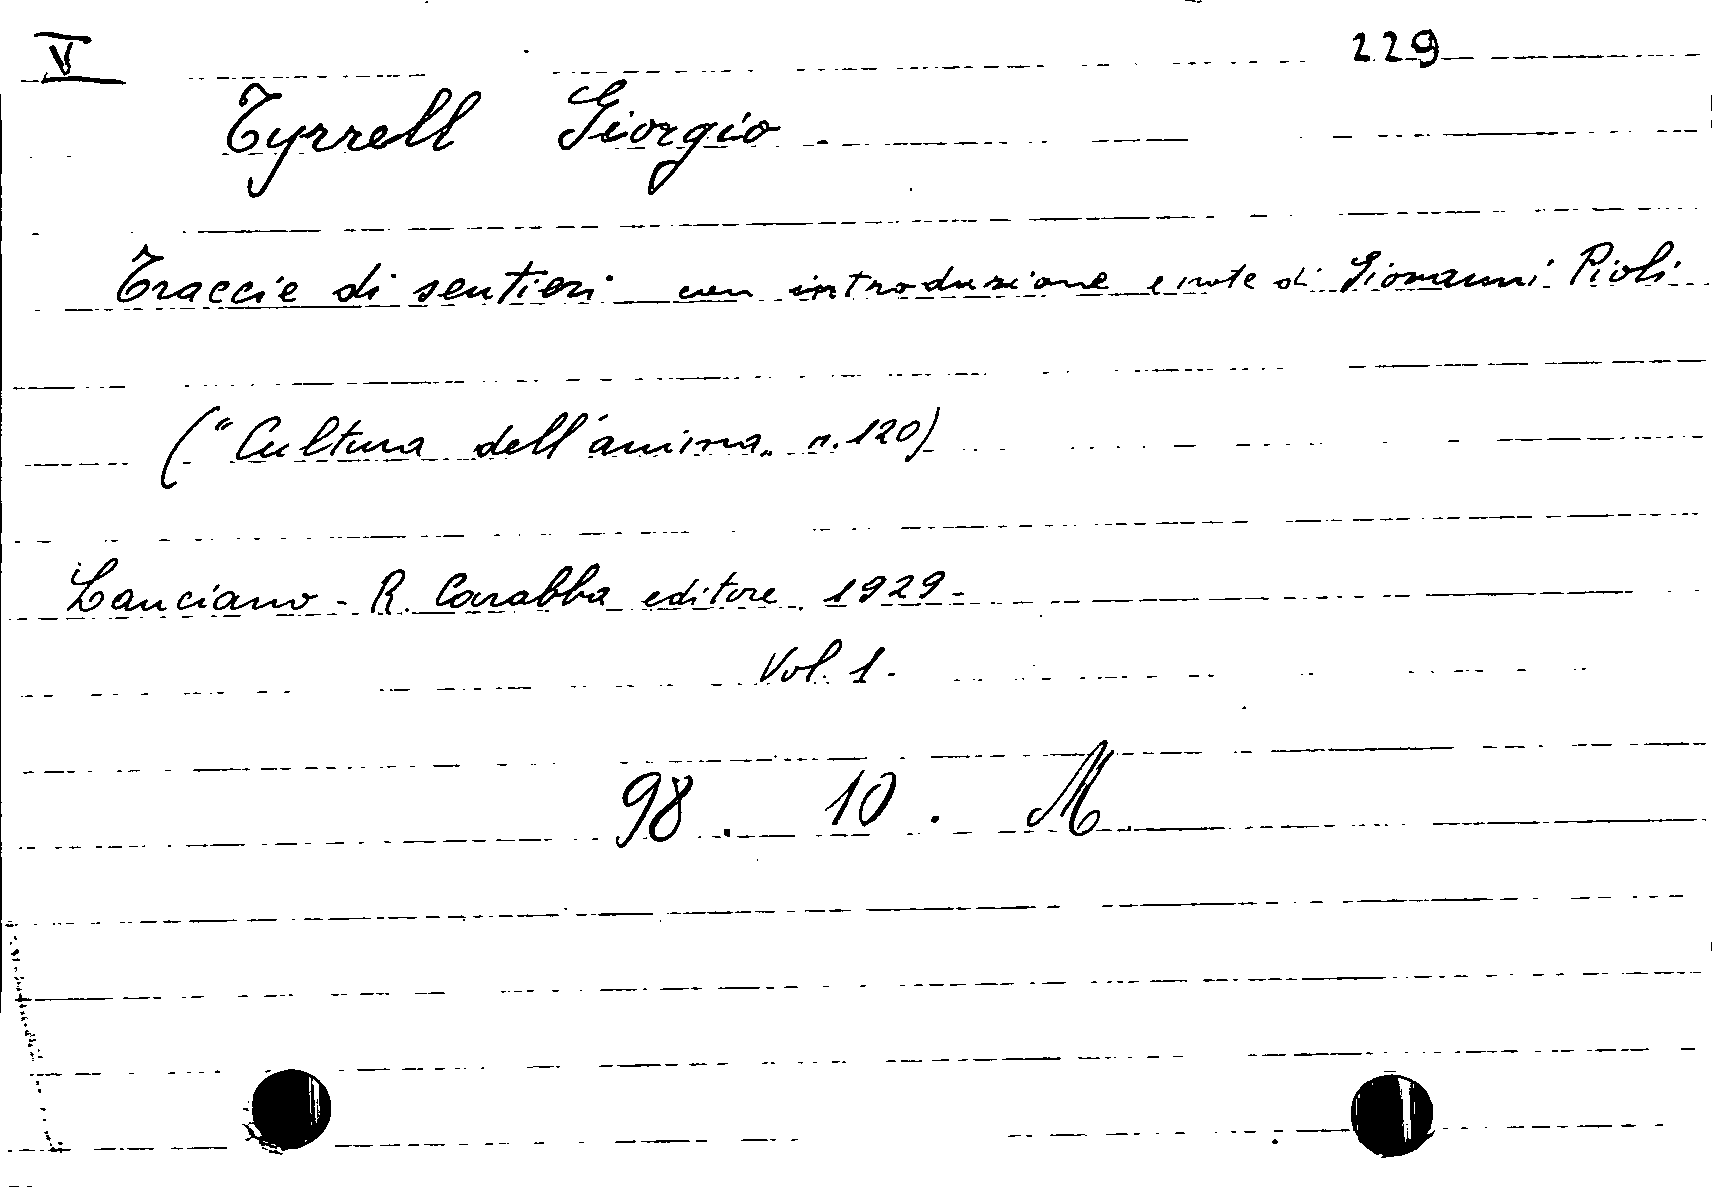 V 229
Tyrrell Giorgio
Traccie di sentieri con introduzione e note di Giovanni Pioli
("Cultura dell'anima„ n. 120)
Lanciano - R. Carabba editore 1929 -
Vol. 1 -
98 . 10 . M